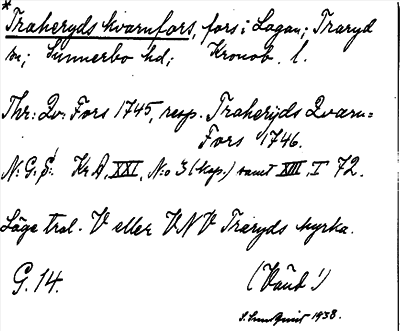 * Traheryds kvarnfors, fors i Lagan; Traryd
sn; Sunnerbo hd; Kronob. l.
Thr: Qv: Fors 1745, resp. Traherÿds Qvarn=
Fors 1746.
N: G. S! Kr A, XXI, N:o 3 (kop.) samt XIII, I 72.
Läge trol. V eller VNV Traryds kyrka.
G. 14. (Vänt!)
S. Lundquist 1938.